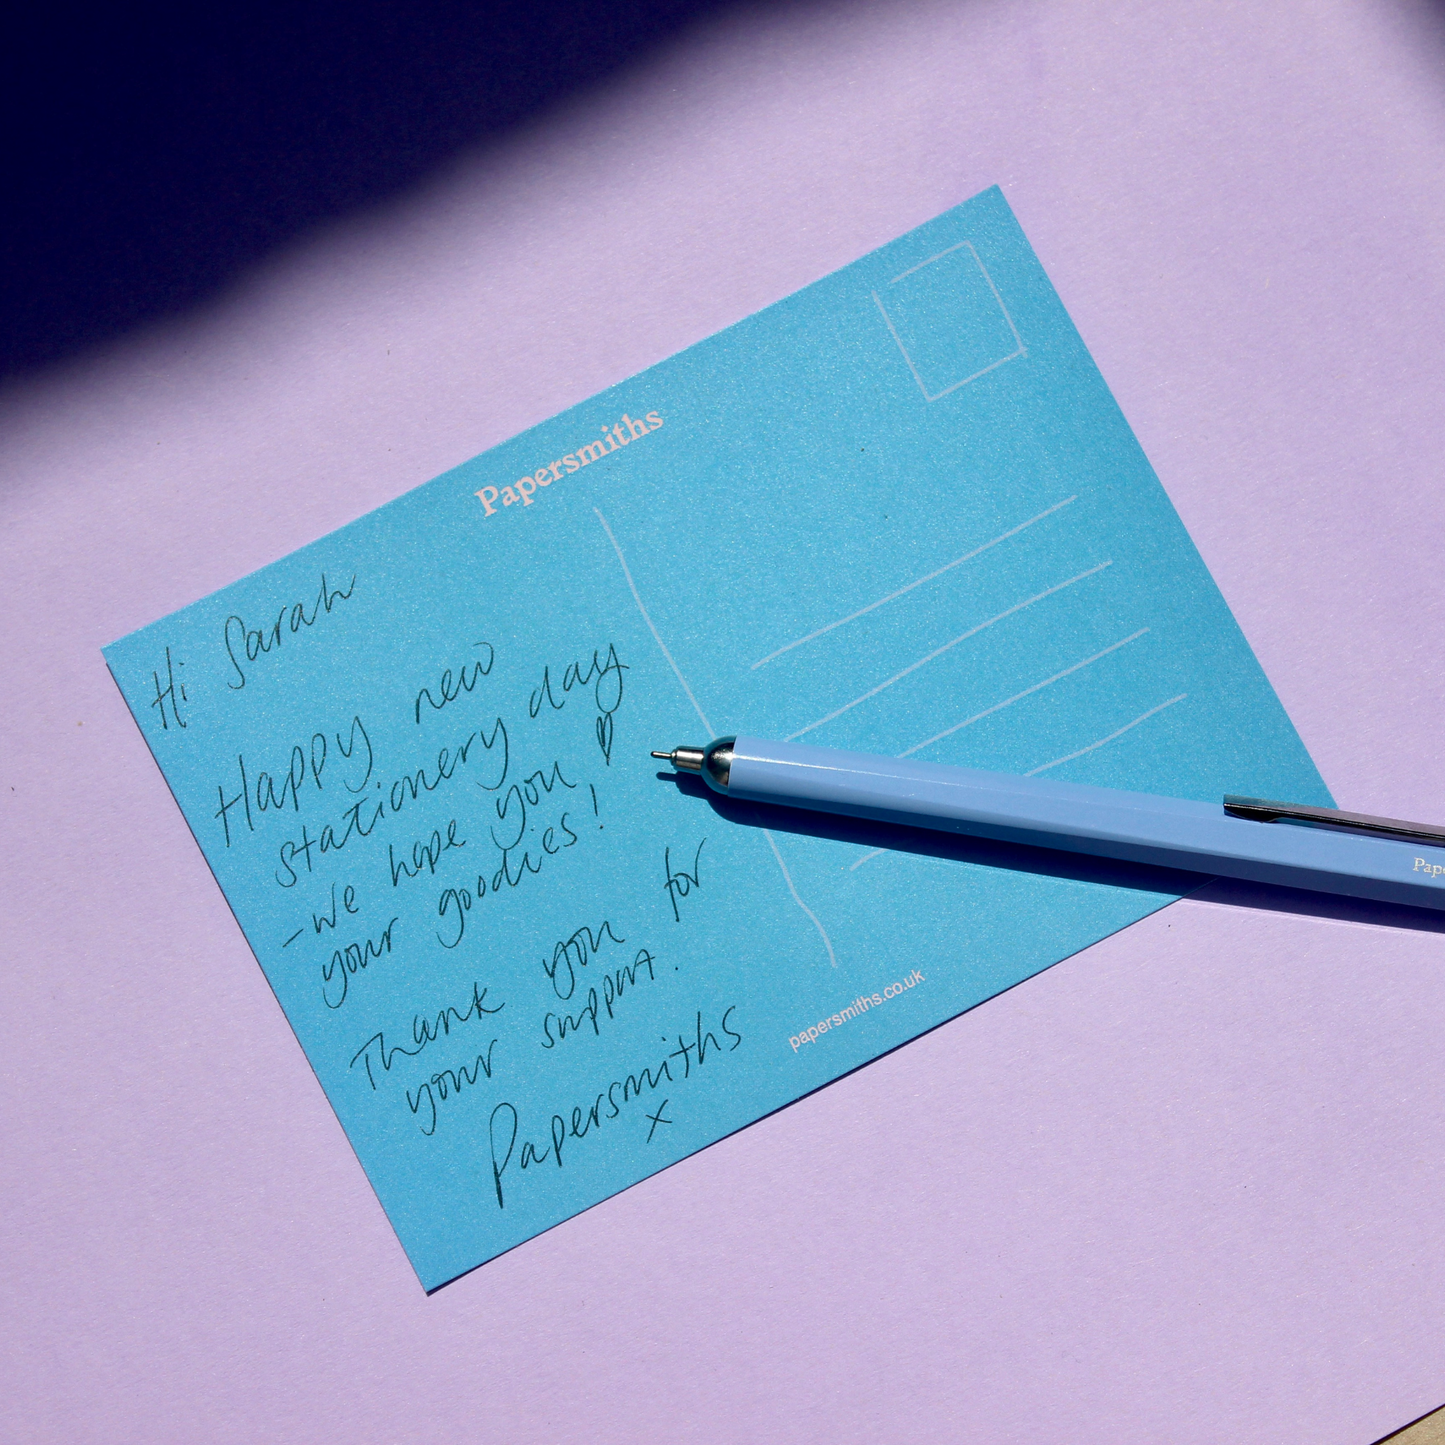 Papersmiths
Hi Sarah
Happy new
stationery day
-we hope you ♡
your goodies!
Thank you for
your support.
Papersmiths
x
papersmiths.co.uk
Pape